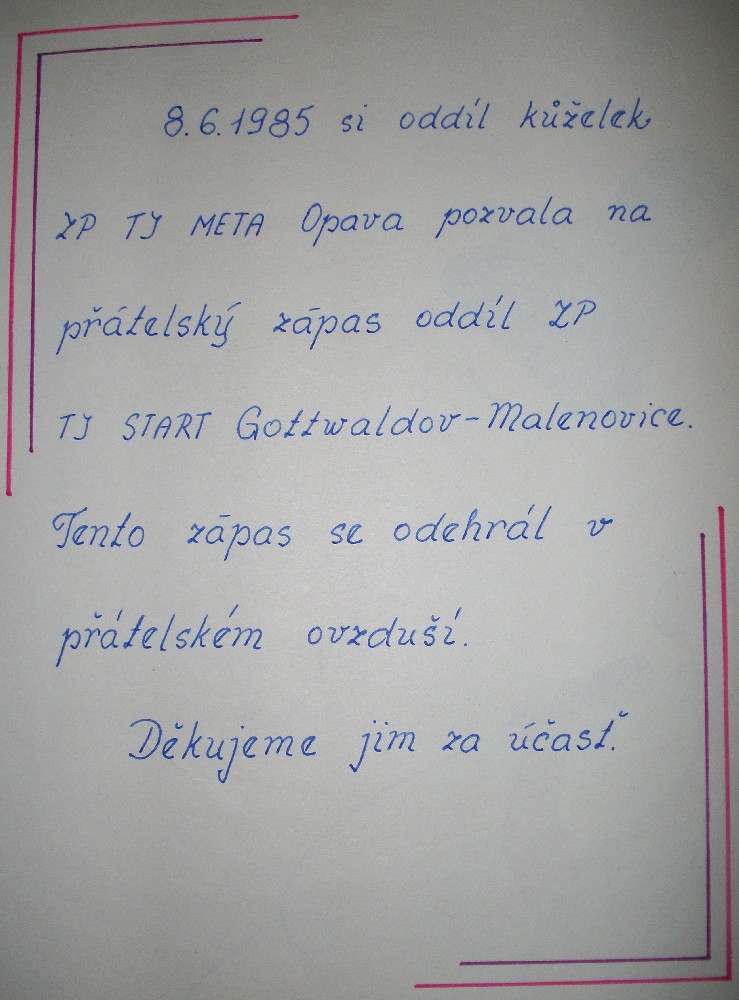 8.6.1985 si oddíl kůželek
ZP TJ META Opava pozvala na
přátelský zápas oddíl ZP
TJ START Gottwaldov-Malenovice.
Tento zápas se odehrál v
přátelském ovzduší.
Děkujeme jim za účasť.